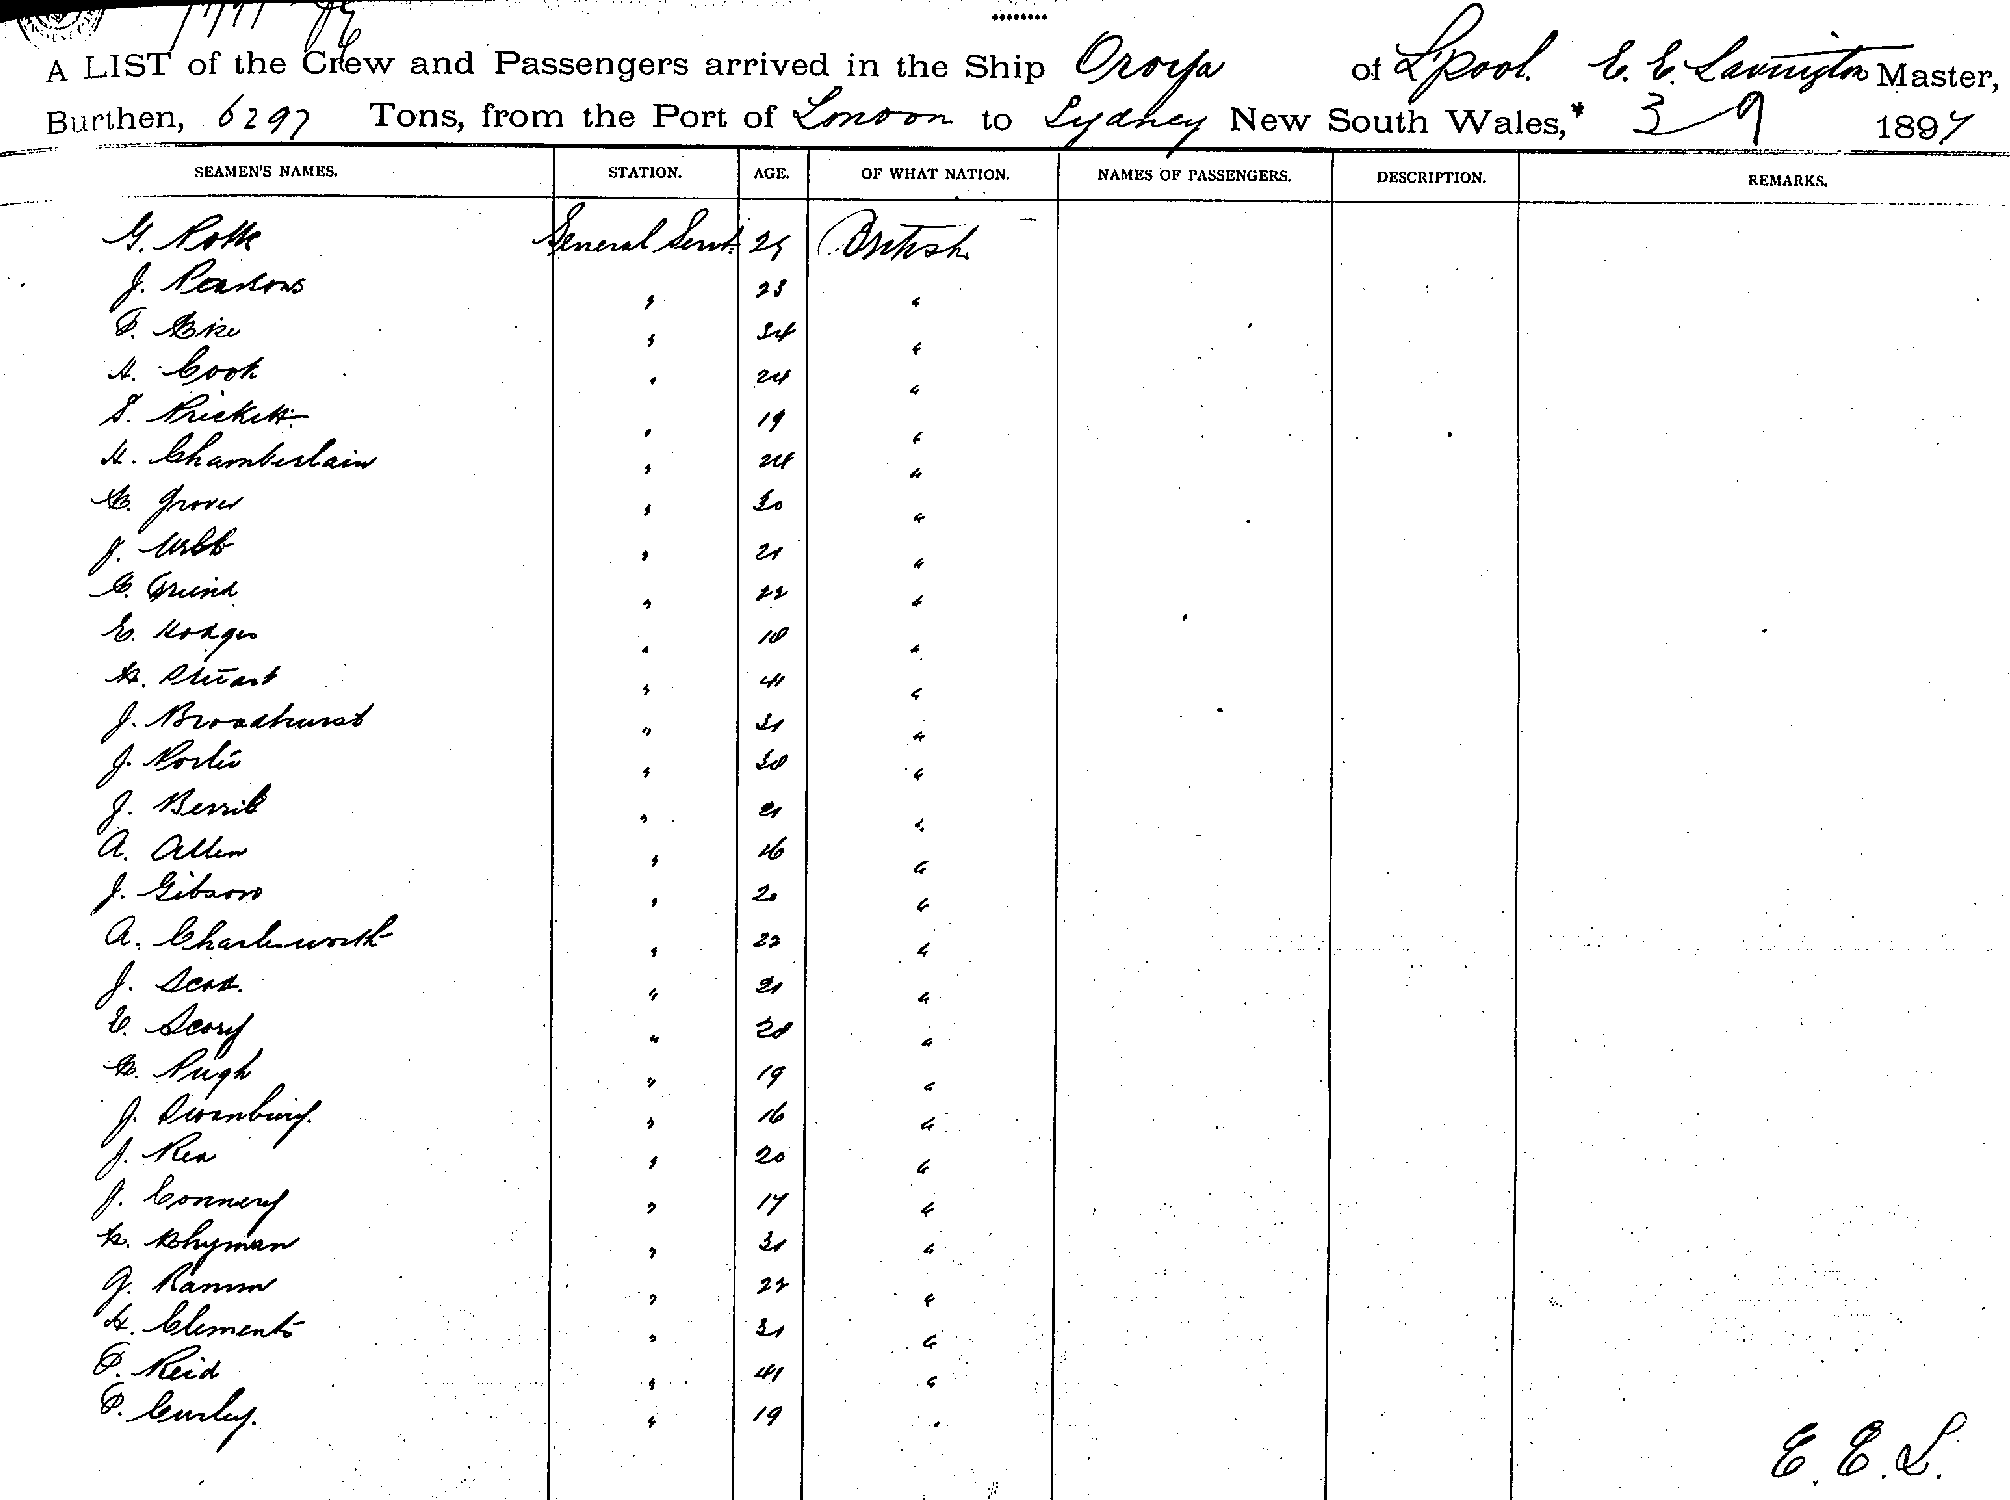 A LIST of the Crew and Passengers arrived in the Ship Oroya of Lpool. E. E. Lavington Master,
Burthen, 6297 Tons, from the Port of London to Sydney New South Wales,* 3 9 1897
SEAMEN'S NAMES. STATION. AGE. OF WHAT NATION. NAMES OF PASSENGERS. DESCRIPTION. REMARKS.
G. General Servt. 25 British
J. Parsons " 23 "
" 34 "
H. Cook " 24 "
S. Prickett " 19 "
H. Chamberlain " 24 "
C. Grover " 30 "
J. Webb " 21 "
C. Friend " 22 "
E. Hodges " 18 "
Stuart " 41 "
J. Broadhurst " 31 "
J. Porter " 38 "
J. Berril " 21 "
A. Allen " 16 "
J. Gibson " 20 "
A. Charlesworth " 22 "
J. " 21 "
E. Scory " 28 "
Pugh " 19 "
J. Swanbury. " 16 "
J. Rea " 20 "
J. Connery " 17 "
Rhyman " 31 "
G. Ramm " 22 "
H. Clements " 31 "
P. Reid " 41 "
P. Curley. " 19 "
E. E. L.